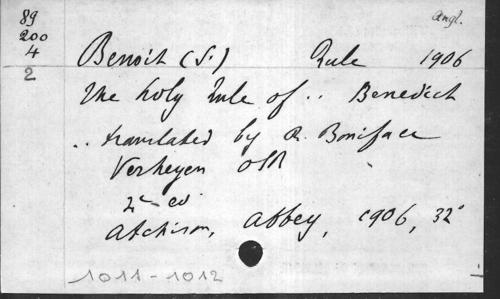 89
200
4
2
angl.
Benoit (S.) Rule 1906
The holy Rule of .. Benedict
.. translated by R. Boniface
Verheyen OSB
2e ed
Atchison, Abbey, 1906, 32°
1011-1012